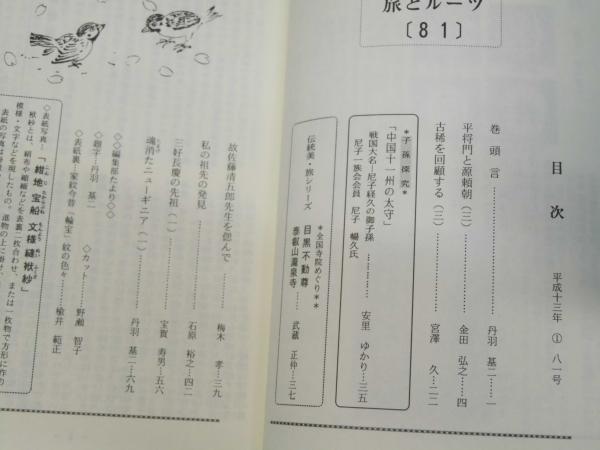 旅とルーツ
〔81〕
目次 平成十三年 ① 八一号
巻頭言 丹羽 基二…一
平将門と源頼朝(三) 金田 弘之…四
古稀を回顧する(三) 宮澤 久…二二
*子孫探究*
「中国十一州の太守」
戦国大名―尼子経久の御子孫
尼子一族会会員 尼子 暢久氏 安里 ゆかり…三五
伝統美・旅シリーズ
*全国寺院めぐり**
目黒不動尊
泰叡山瀧泉寺… 武蔵 正仲…三七
故佐藤清五郎先生を偲んで 梅木 孝…三九
私の祖先の発見 石原 裕之…四二
三好長慶の先祖(一) 宝賀 寿男…五六
魂消たニューギニア(一) 丹羽 基二…六九
◇◇編集部たより◇◇
◇題字―丹羽 基二 ◇カット―野瀬 智子
◇表紙裏―家紋今昔「輪宝」紋の色々 楡井 範正
◇表紙写真―「紺地 宝船 文様 縫袱紗」
袱紗とは、絹布や縮緬などを表裏二枚合わせ、または一枚物で方形に作り
模様・文字などを現したもの。進物の上に掛け
表紙の写真は